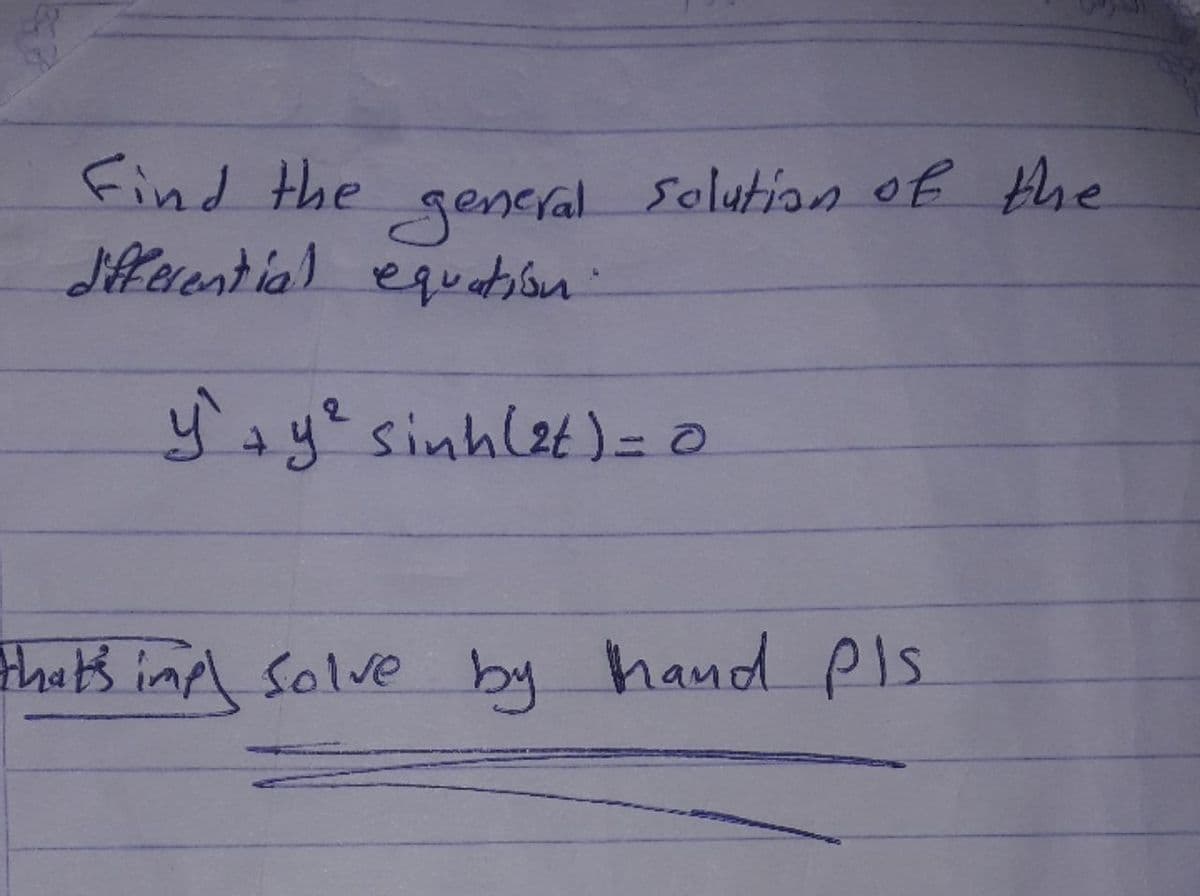 Find the general solution of the
differential equation:
y` + y² sinh(2t) = 0
that's imp solve by hand pls